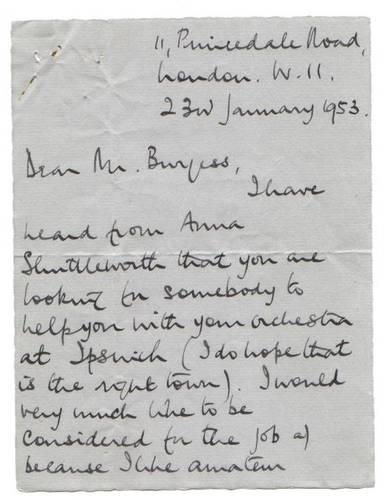 11, Princedale Road,
London. W.11.
23rd January 1953.
Dear Mr. Burgess,
I have
heard from Anna
Shuttleworth that you are
looking for somebody to
help you with your orchestra
at Ipswich (I do hope that
is the right town). I would
very much like to be
considered for the job a)
because I like amateur